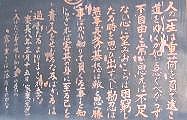 人の一生は重荷を負て遠き
道をゆくか如しいそくへからす
不自由を常とおもへは不足
なし心に望おこらは困窮し
たる時を思ひ出すへし堪忍は
無事長久の基いかりは敵と
おもへ勝事はかり知てまくる事を知
らされは害其身に至る己を
責て人を責るな及はさるは
過たるよりまされり